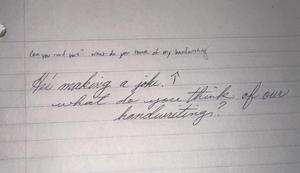 Can you read this? what do you think of my handwriting
He's making a joke. ↑
what do you think of our
handwritings?